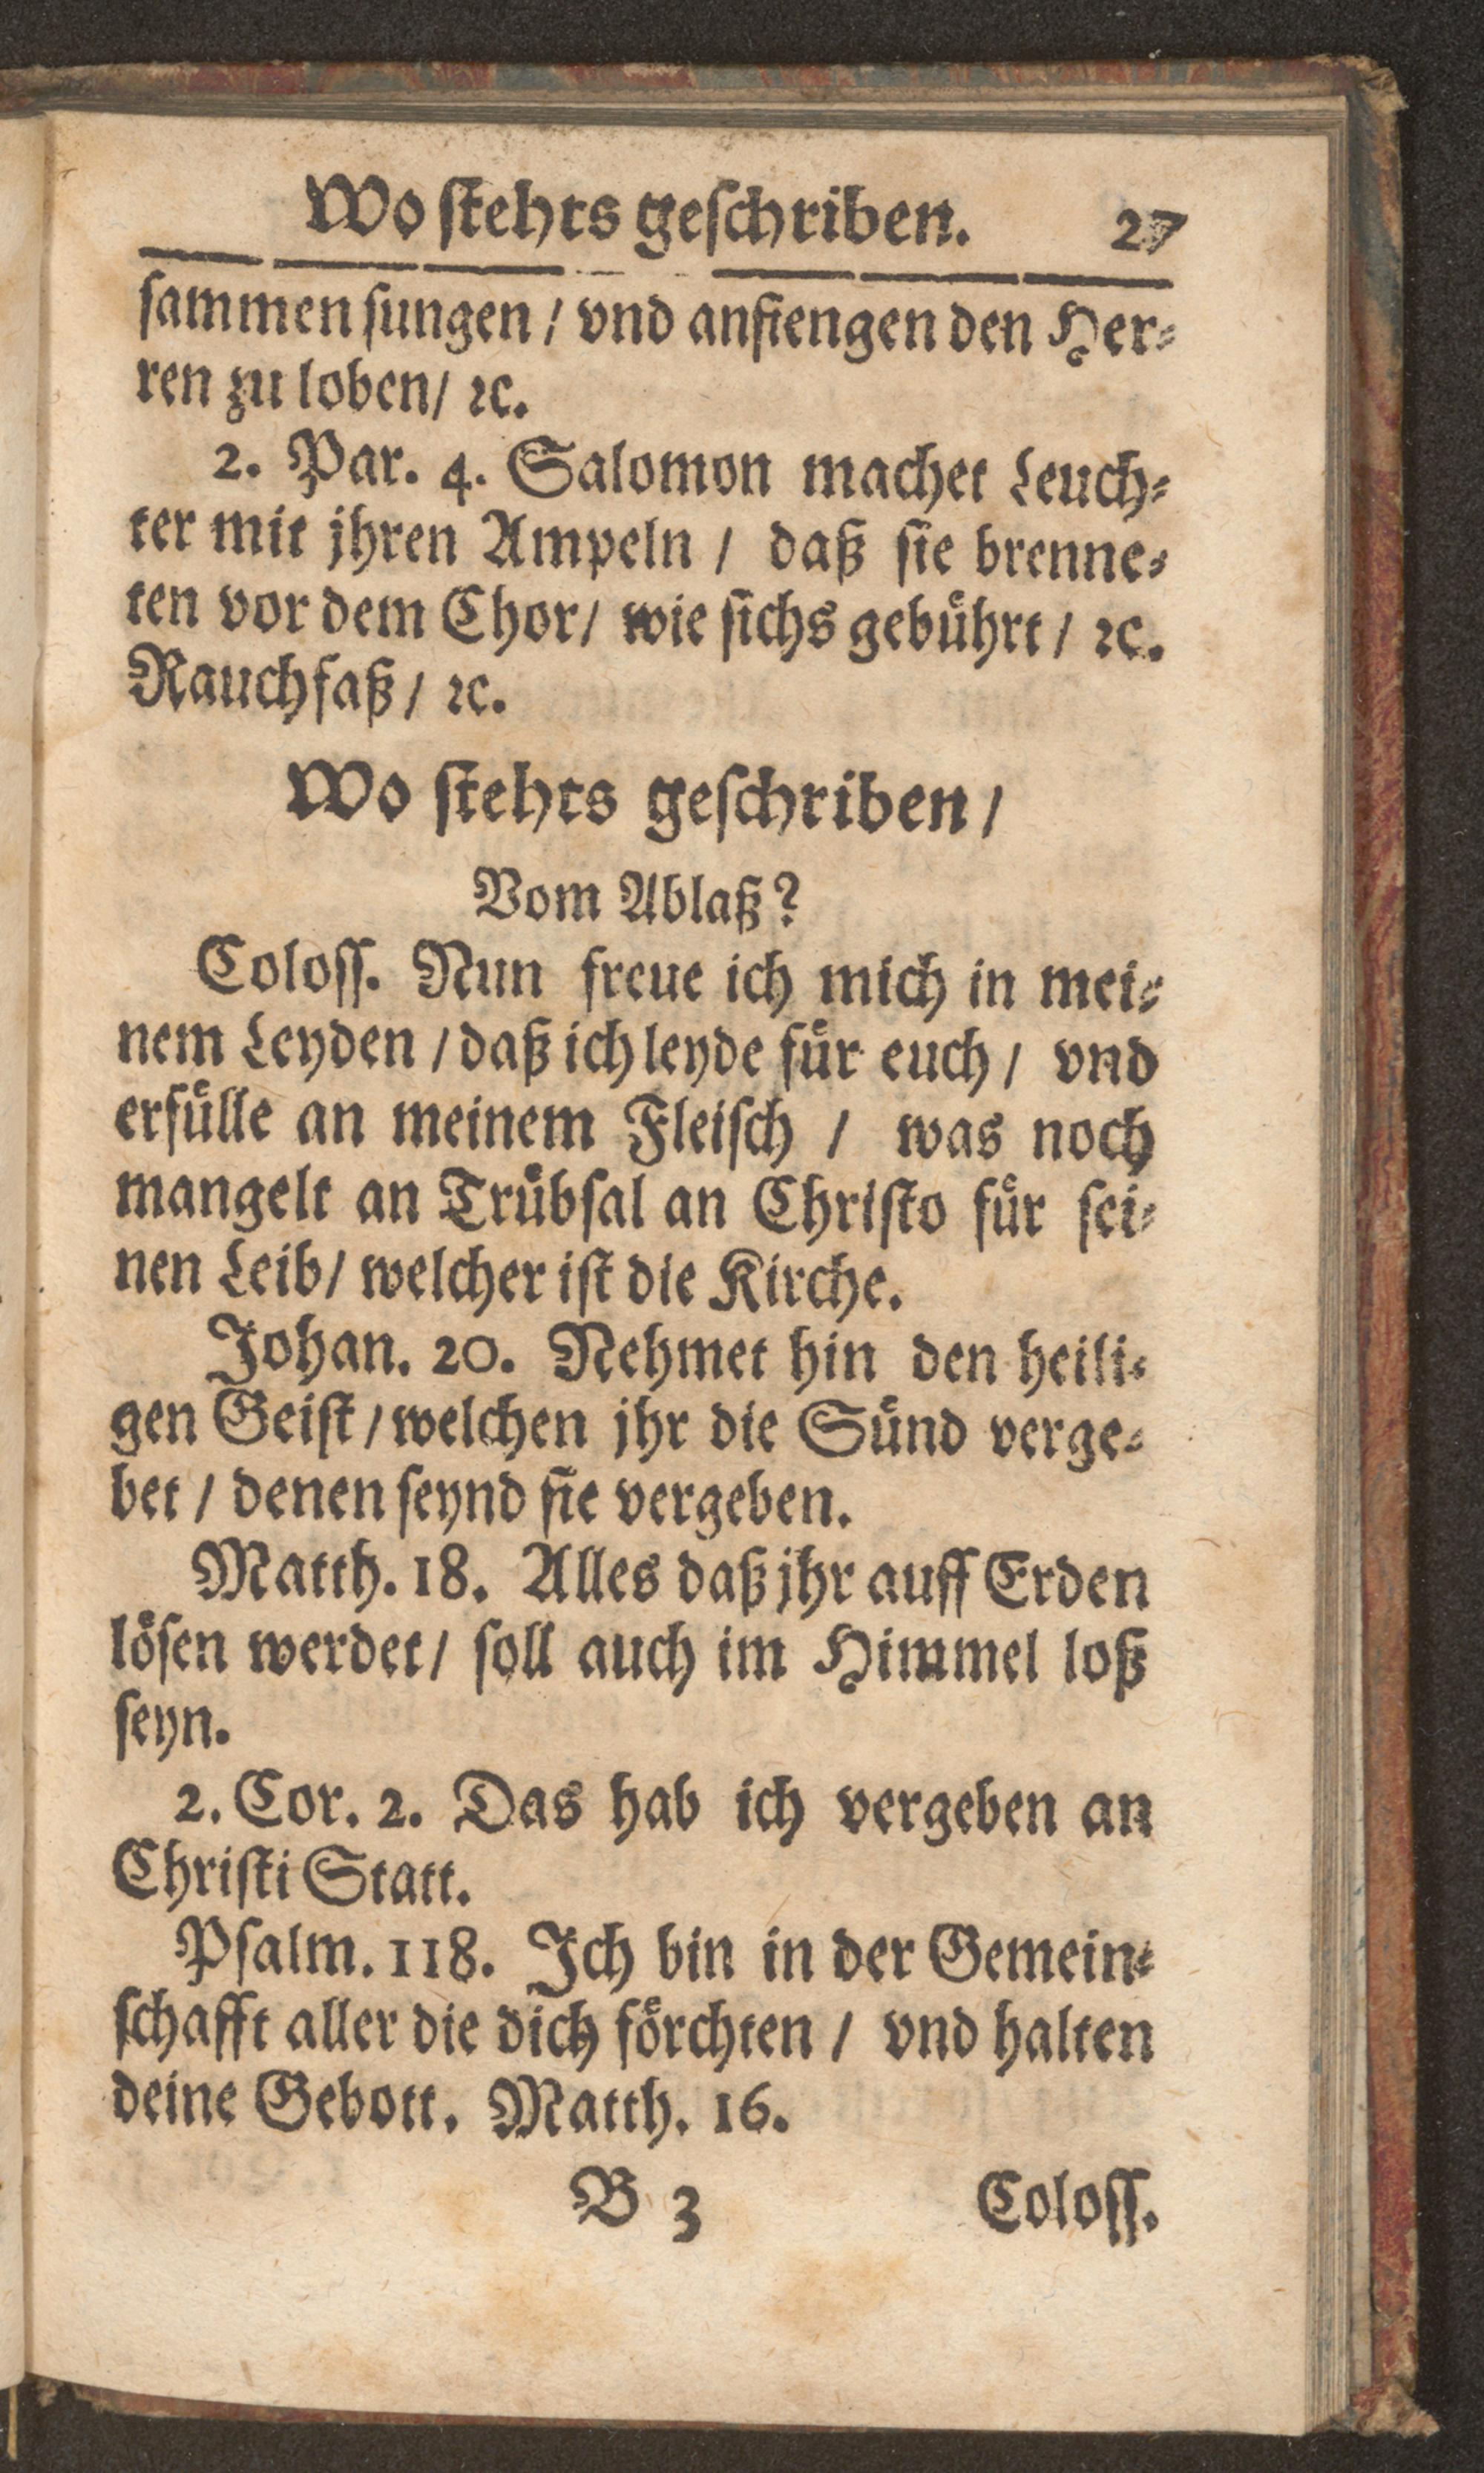 Wo stehts geschriben. 27
sammen sungen / vnd anfiengen den Her-
ren zu loben / ꝛc.
2. Par. 4. Salomon machet Leuch-
ter mit jhren Ampeln / daß sie brenne-
ten vor dem Chor / wie sichs gebührt / ꝛc.
Rauchfaß / ꝛc.
Wo stehts geschriben /
Vom Ablaß?
Coloss. Nun freue ich mich in mei-
nem Leyden / daß ich leyde für euch / vnd
erfülle an meinem Fleisch / was noch
mangelt an Trübsal an Christo für sei-
nen Leib / welcher ist die Kirche.
Johan. 20. Nehmet hin den heili-
gen Geist / welchen jhr die Sünd verge-
bet / denen seynd sie vergeben.
Matth. 18. Alles daß jhr auff Erden
lösen werdet / soll auch im Himmel loß
seyn.
2. Cor. 2. Das hab ich vergeben an
Christi Statt.
Psalm. 118. Ich bin in der Gemein-
schafft aller die dich förchten / vnd halten
deine Gebott. Matth. 16.
B 3 Coloss.